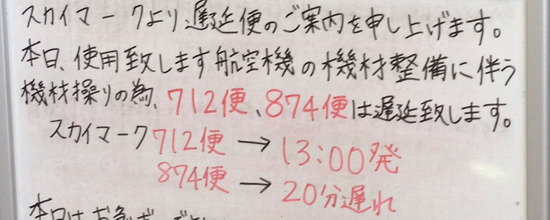 スカイマークより遅延便のご案内を申し上げます。
本日、使用致します航空機の機材整備に伴う
機材操りの為、712便、874便は遅延致します。
スカイマーク712便→13:00発
874便→20分遅れ
本日はお急ぎ